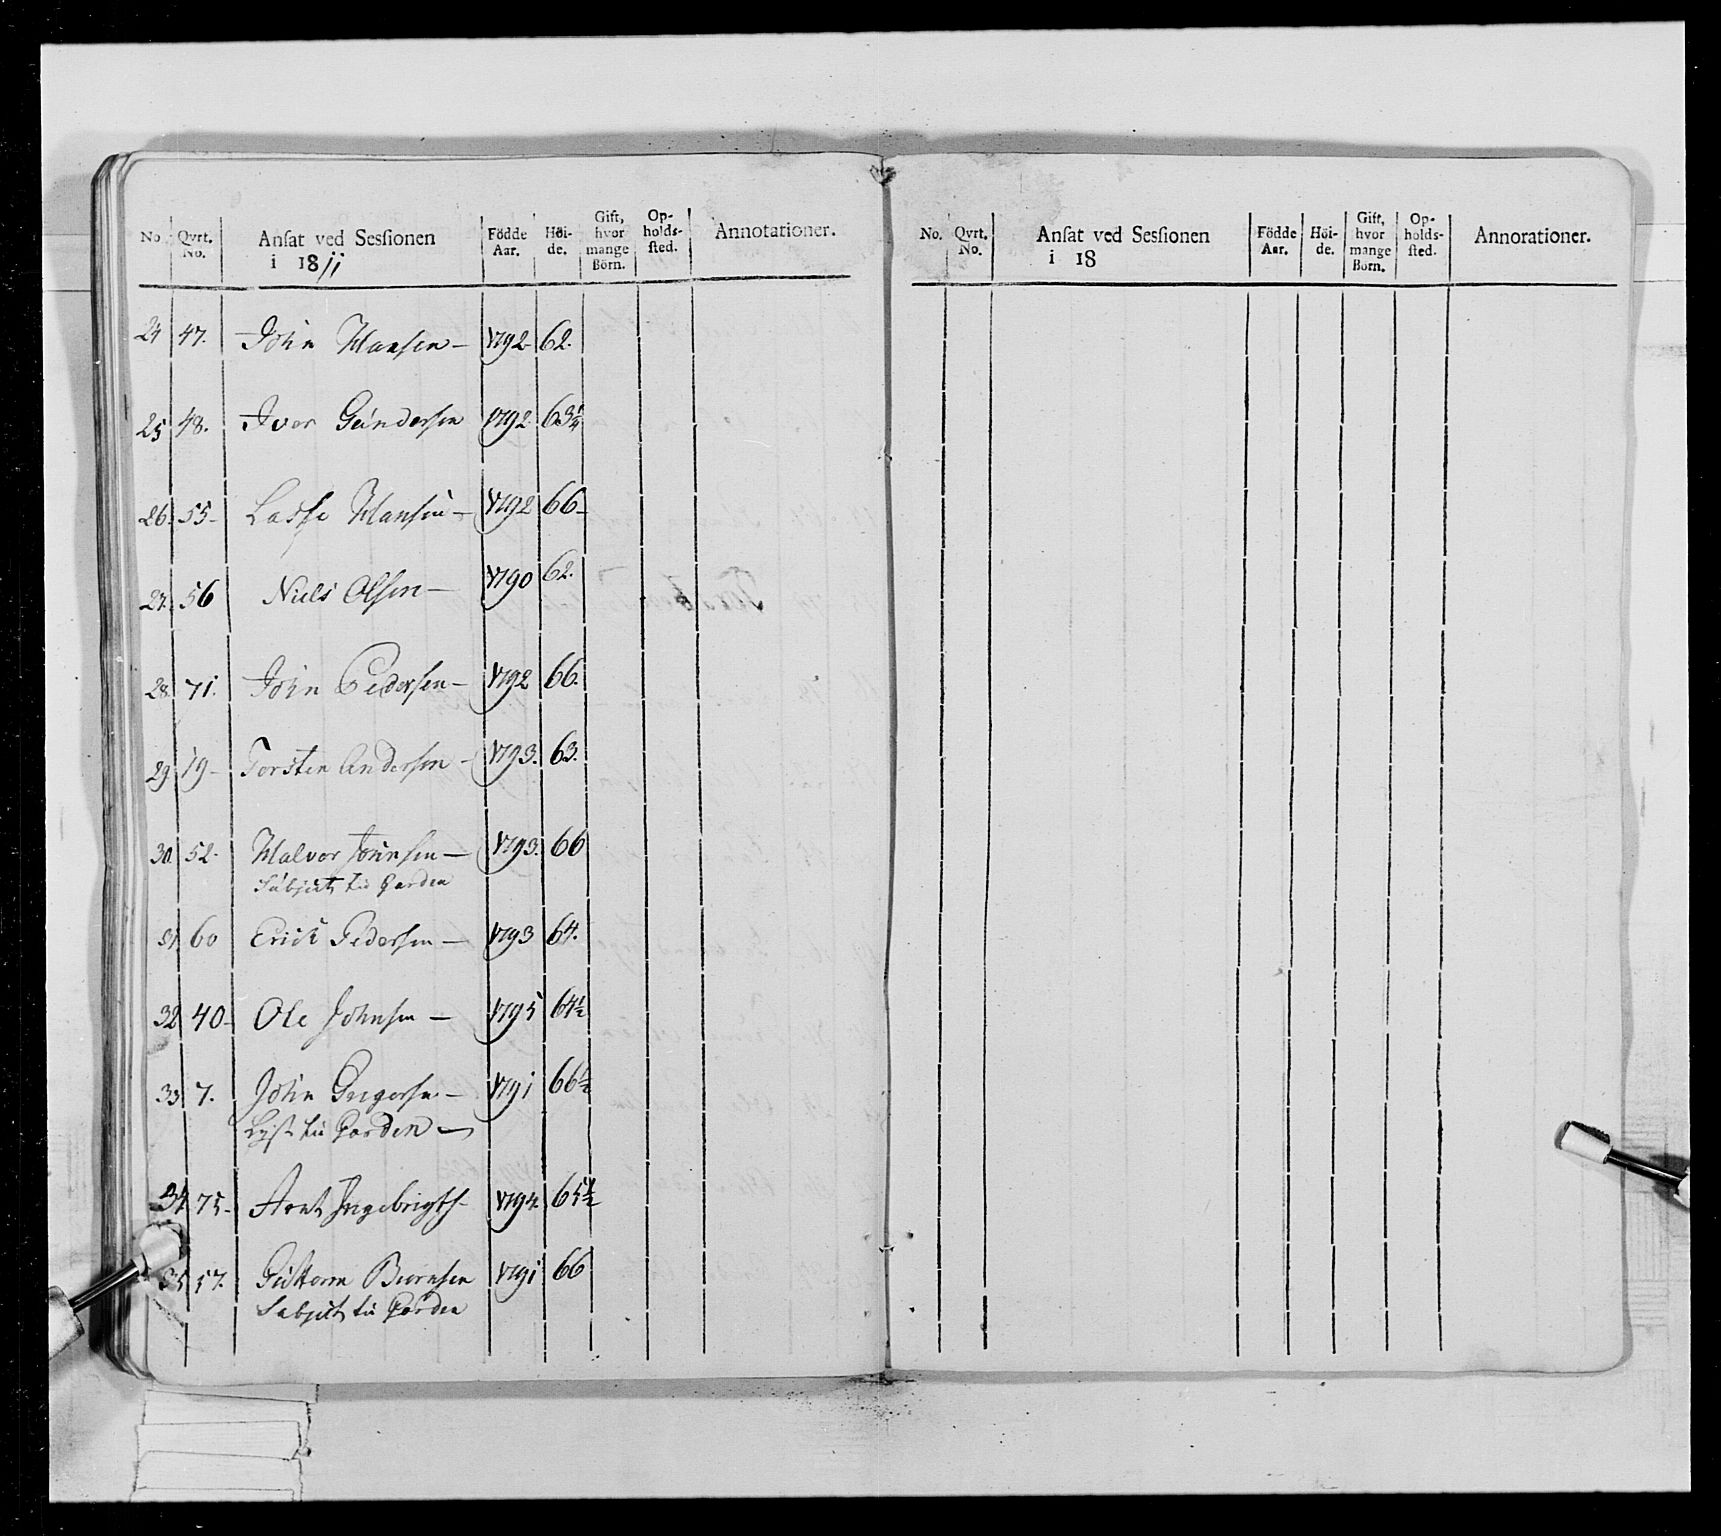 No. Qvrt. No. Ansat ved Sessionen i 1811 Födde Aar. Höi-de. Gift, hvor mange Börn. Op-holds-sted. Annotationer.
24 47. John Hansen – 1792. 62.
25 48. Iver Gundersen 1792 63¼
26. 55 – Lasse Hansen – 1792 66 –
27. 56 Niels Olsen – 1790 62.
28. 71. John Pedersen – 1792 66.
29 19 – Torsten Andersen – 1793. 63.
30. 52. Halvor Johnsen – 1793. 66
Subject til Garden
31 60 Erich Pedersen – 1793 64.
32 40 – Ole Johnsen – 1795 64½
33 7. John Gregersen – 1791 66½
Lyst til Garden –
34 75 – Arnt Ingebrigts– 1794. 65½
35 57. Guttorm Biørnsen 1791 66
Subject til Garden
No. Qvrt. No. Ansat ved Sessionen i 18 Födde Aar. Höi-de. Gift, hvor mange Börn. Op-holds-sted. Annorationer.